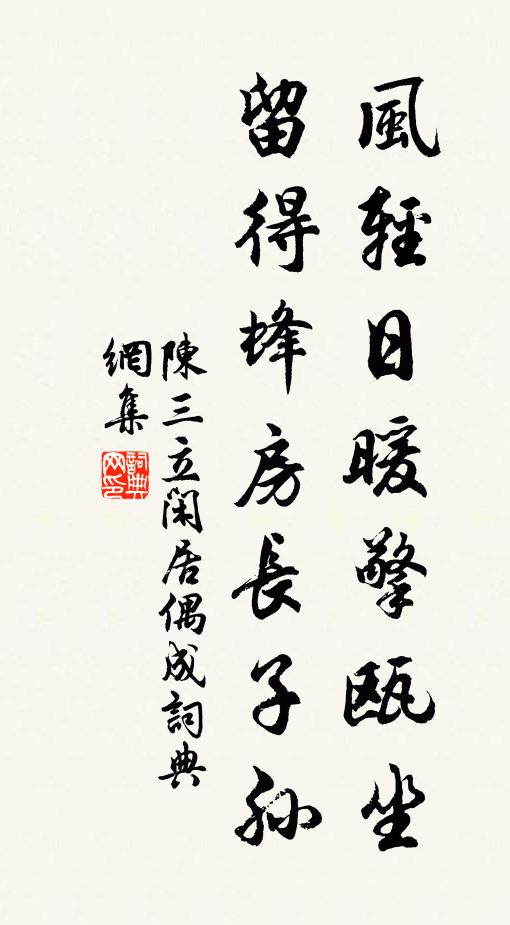 風輕日暖擎甌坐
留得蜂房長子孫
陳三立閑居偶成詞典
網集
詞典網印